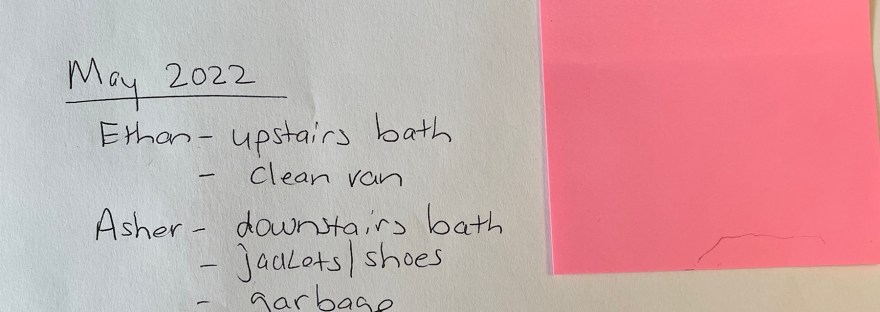 May 2022
Ethan - upstairs bath
- clean van
Asher - downstairs bath
- jackets/shoes
- garbage